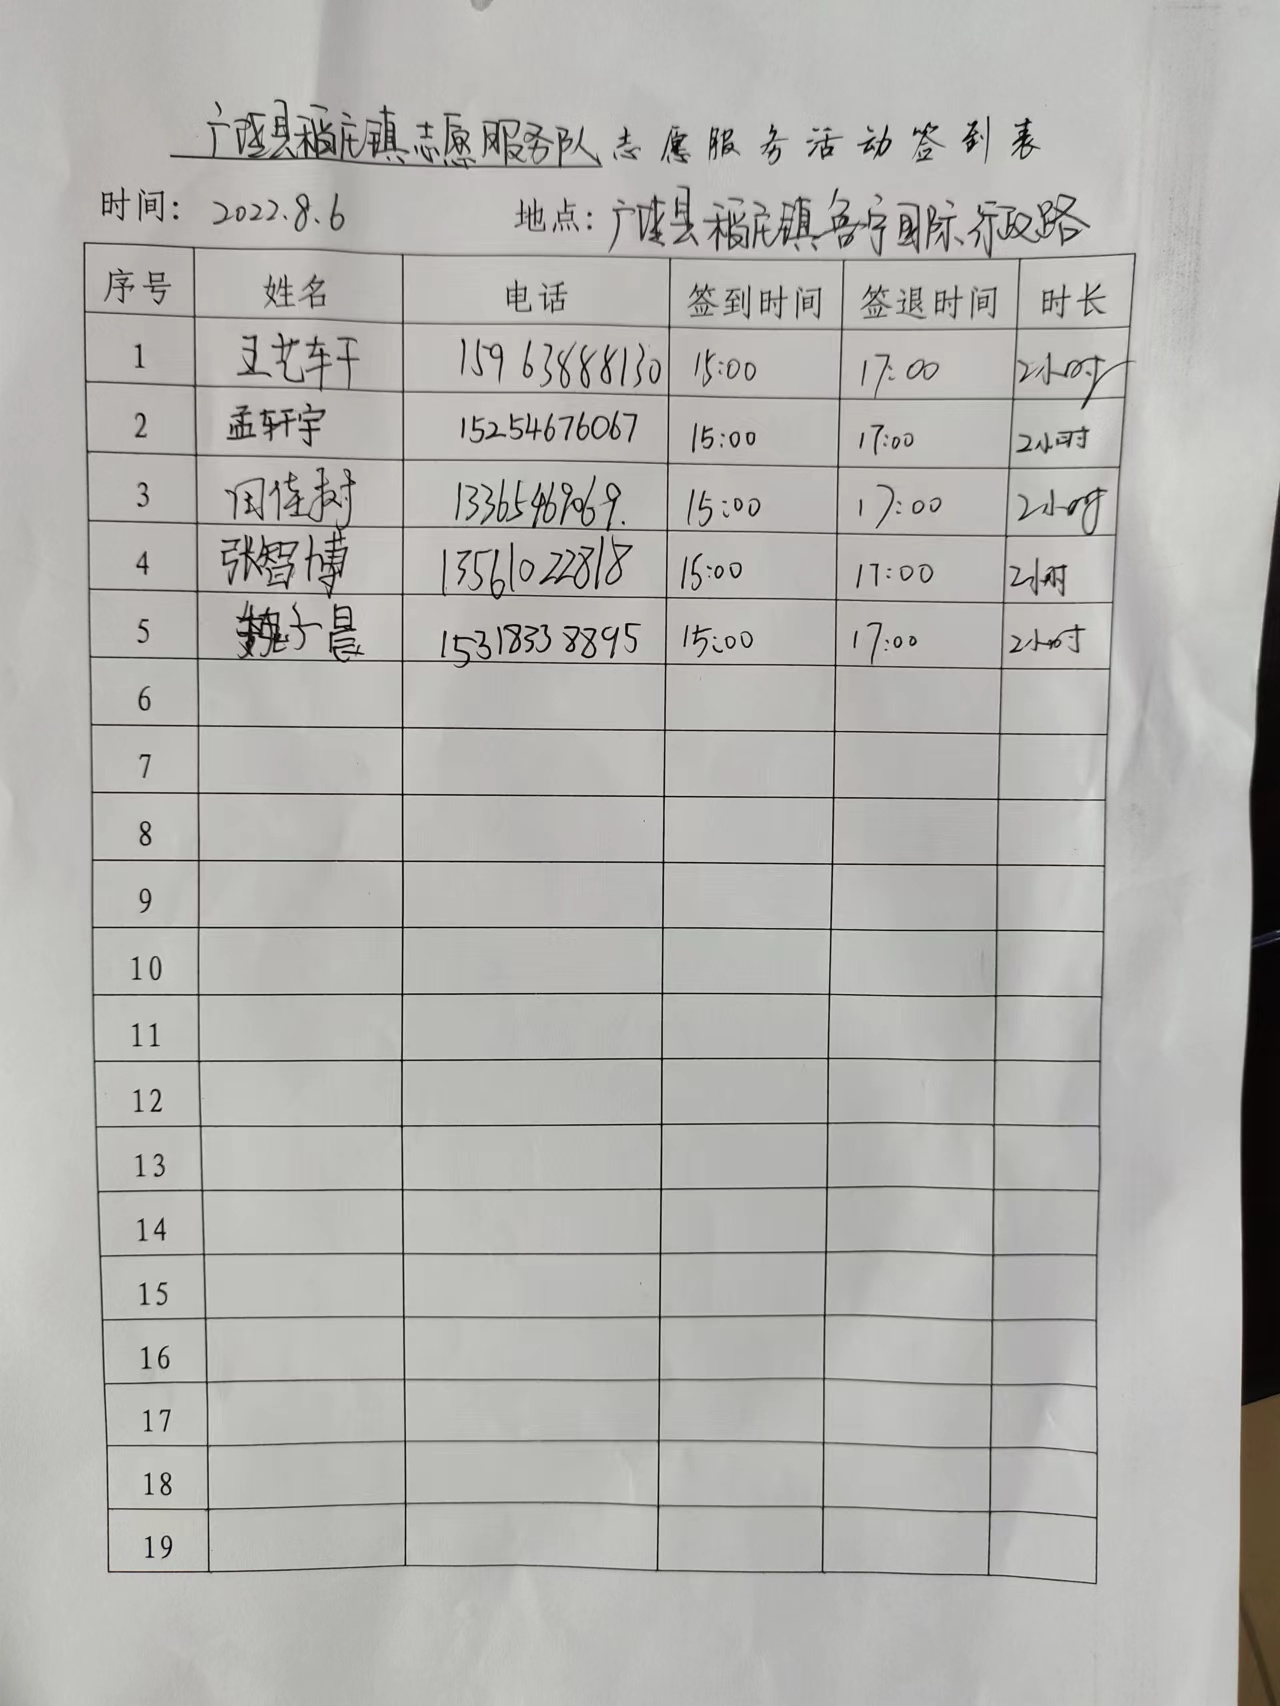 广饶县稻庄镇志愿服务队志愿服务活动签到表
时间: 2022.8.6 地点: 广饶县稻庄镇鲁宁国际、行政路
序号 姓名 电话 签到时间 签退时间 时长
1 王艺轩 15963888130 15:00 17:00 2小时
2 孟轩宇 15254676067 15:00 17:00 2小时
3 田佳树 13365469069. 15:00 17:00 2小时
4 张智博 13561022818 15:00 17:00 2小时
5 子晨 15318338895 15:00 17:00 2小时
6
7
8
9
10
11
12
13
14
15
16
17
18
19